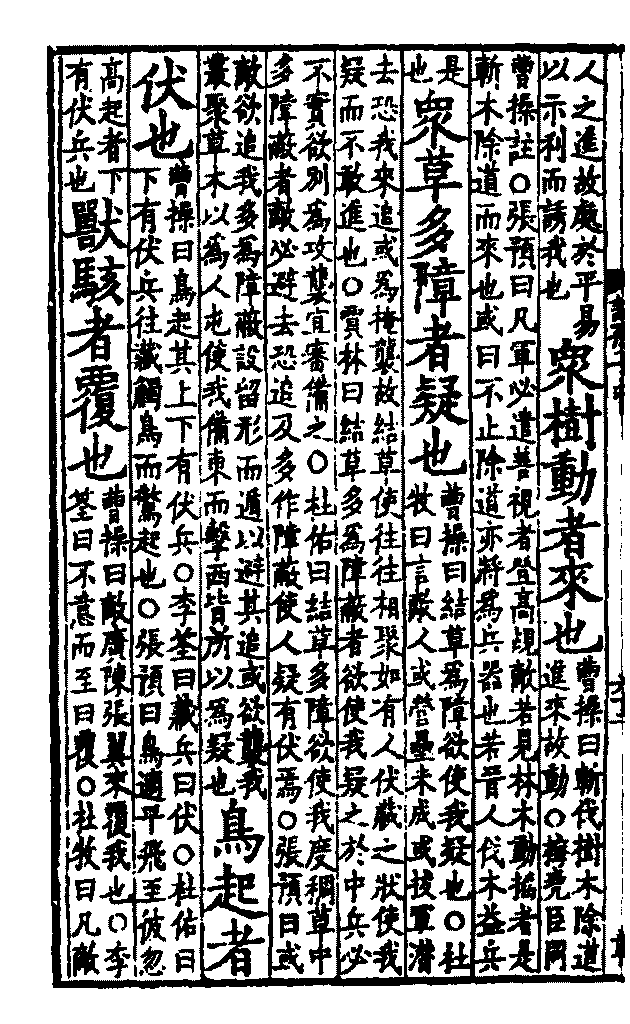 人之進故處於平易
以示利而誘我也
衆樹動者來也
曹操曰斬伐樹木除道
進來故動○梅堯臣同
曹操註○張預曰凡軍必遣善視者登高覘敵若見林木動搖者是
斬木除道而來也或曰不止除道亦將為兵器也若晉人伐木益兵
是
也
衆草多障者疑也
曹操曰結草為障欲使我疑也○杜
牧曰言敵人或營壘未成或拔軍潛
去恐我來追或為掩襲故結草使往往相聚如有人伏藏之狀使我
疑而不敢進也○賈林曰結草多為障蔽者欲使我疑之於中兵必
不實欲別為攻襲宜審備之○杜佑曰結草多障欲使我度稠草中
多障蔽者敵必避去恐追及多作障蔽使人疑有伏焉○張預曰或
敵欲追我多為障蔽設留形而遁以避其追或欲襲我
叢聚草木以為人屯使我備東而擊西皆所以為疑也
鳥起者
伏也
曹操曰鳥起其上下有伏兵○李筌曰藏兵曰伏○杜佑曰
下有伏兵往藏觸鳥而驚起也○張預曰鳥適平飛至彼忽
高起者下
有伏兵也
獸駭者覆也
曹操曰敵廣陳張翼來覆我也○李
筌曰不意而至曰覆○杜牧曰凡敵